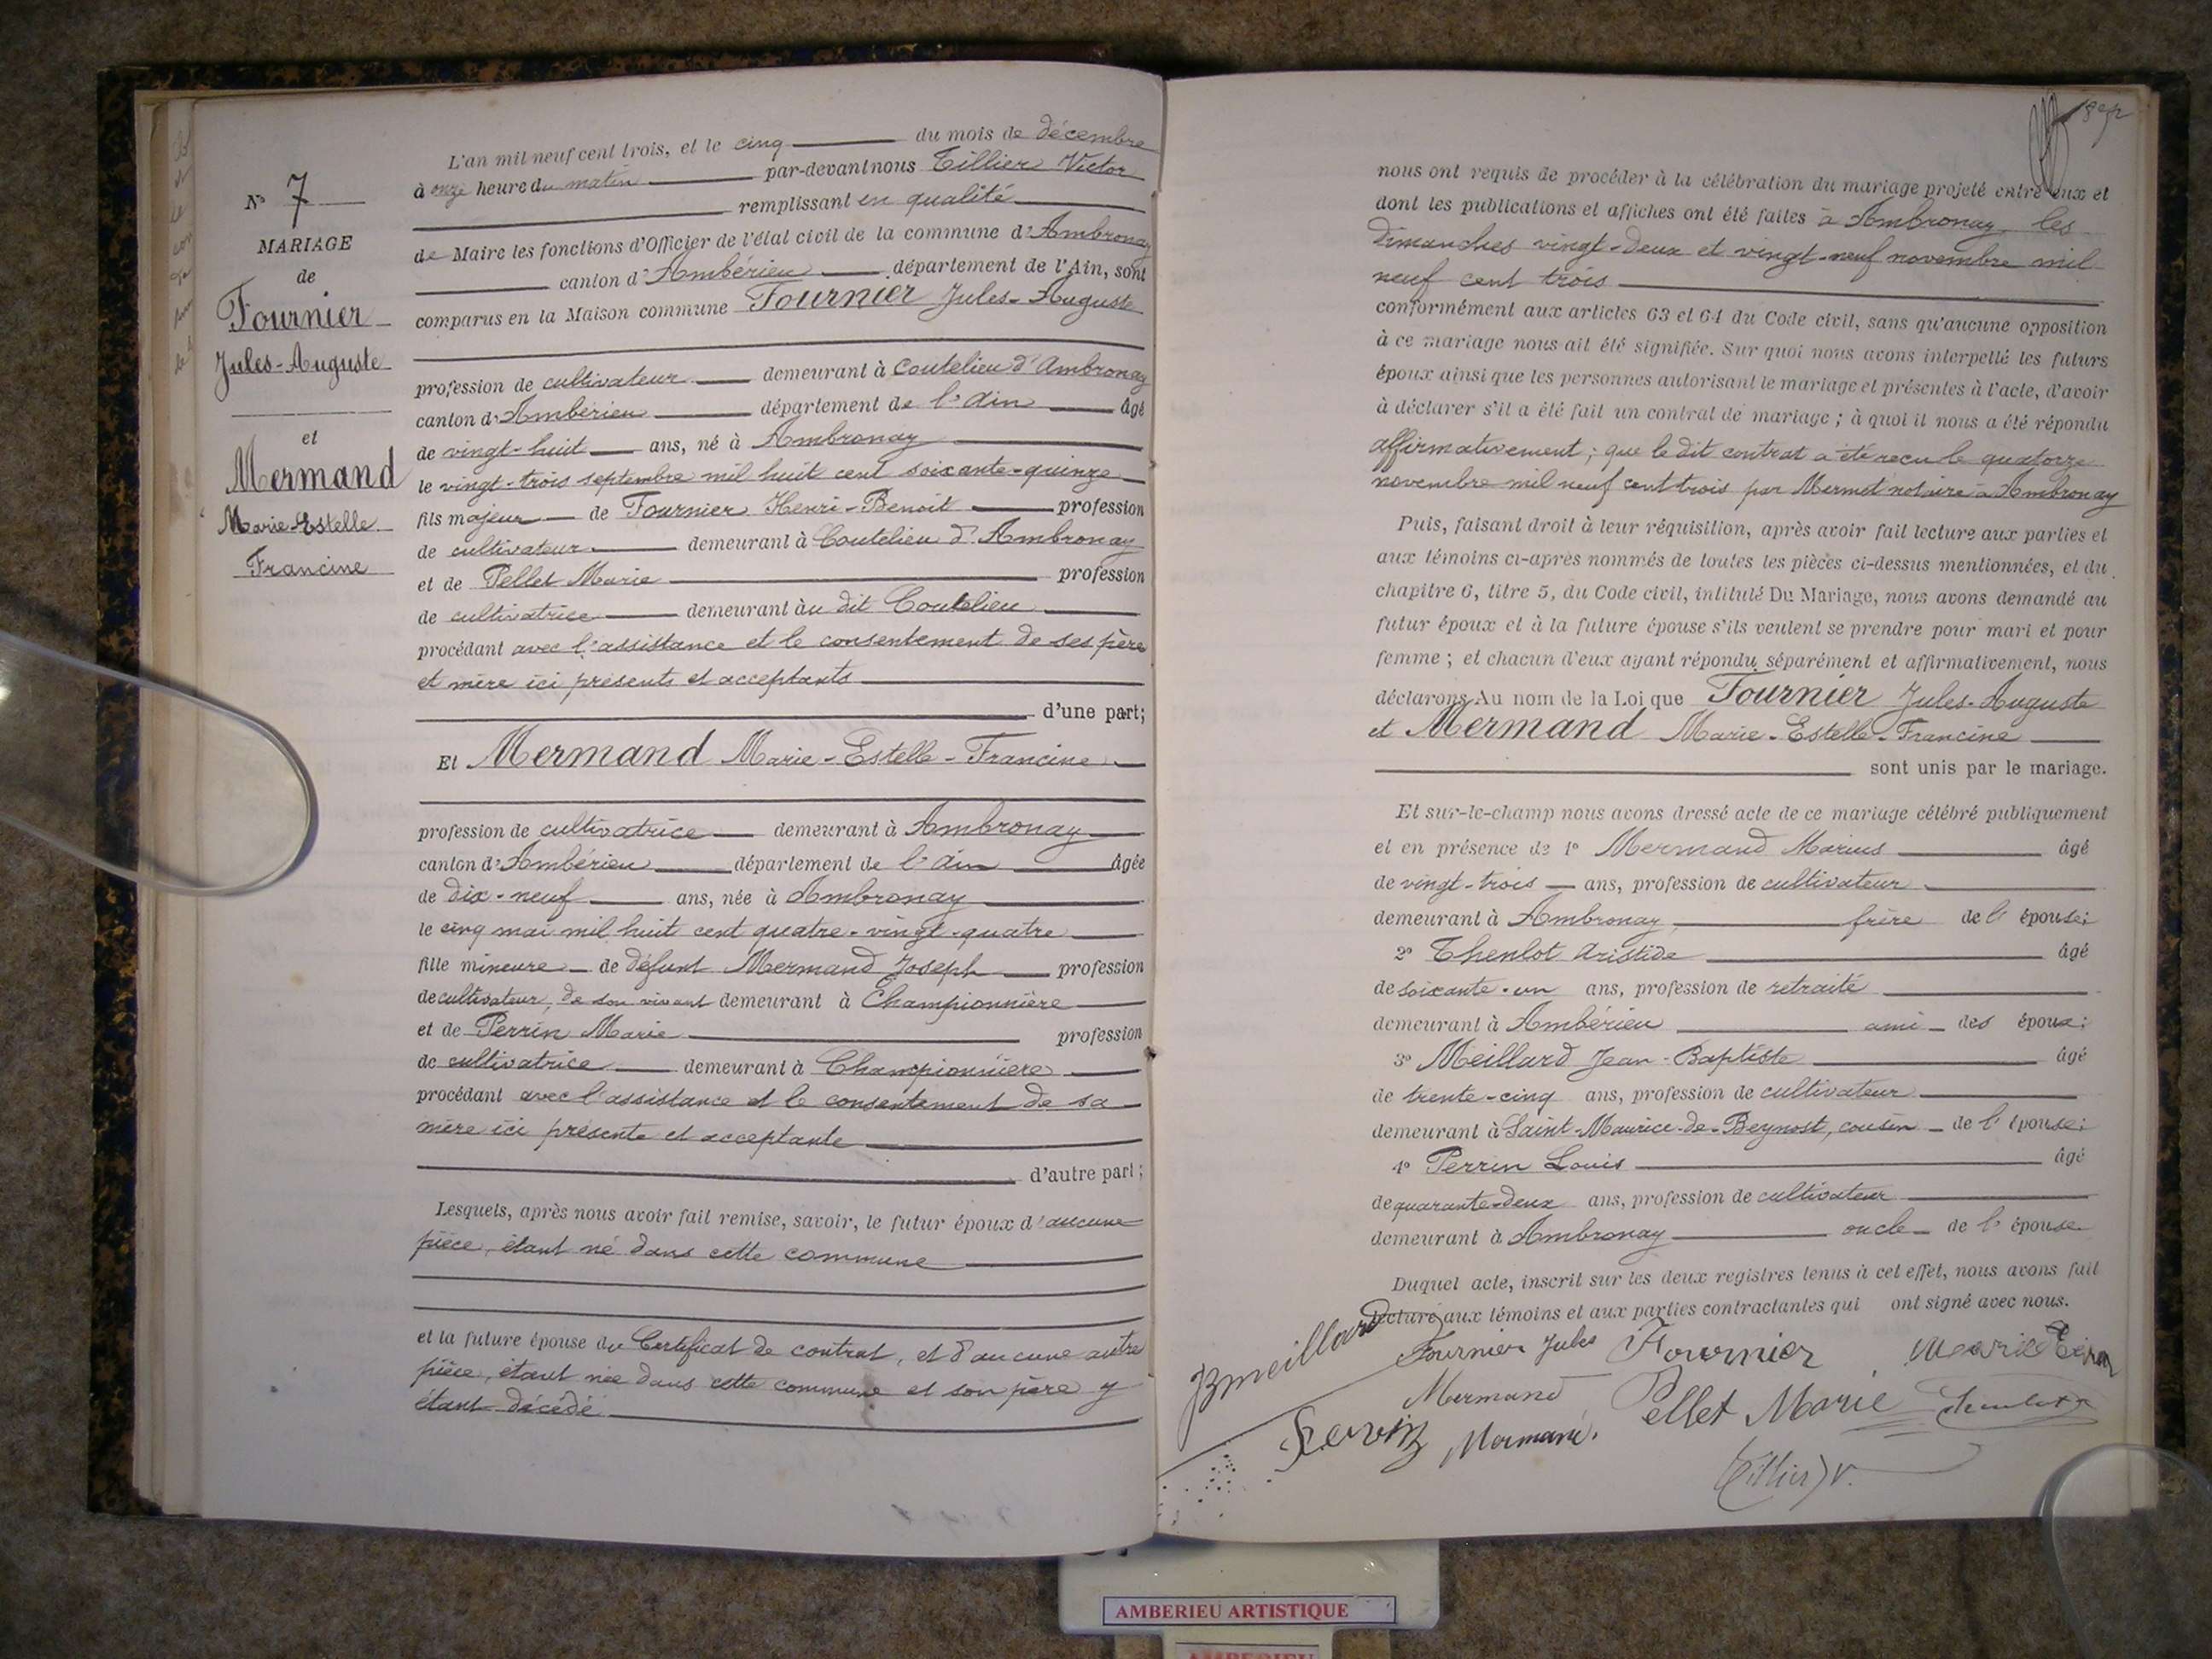 N° 7
MARIAGE
de
Fournier
Jules-Auguste
et
Mermand
Marie-Estelle
Francine
L'an mil neuf cent trois, et le cinq du mois de décembre
à onze heure du matin par-devant nous Tillier Victor
remplissant en qualité
de Maire les fonctions d'Officier de l'état civil de la commune d'Ambronay
canton d'Ambérieu département de l'Ain, sont
comparus en la Maison commune Fournier Jules-Auguste
profession de cultivateur demeurant à Coutelieu d'Ambronay
canton d'Ambérieu département de l'Ain âgé
de vingt-huit ans, né à Ambronay
le vingt-trois septembre mil huit cent soixante-quinze
fils majeur de Fournier Henri-Benoit profession
de cultivateur demeurant à Coutelieu d'Ambronay
et de Pellet Marie profession
de cultivatrice demeurant àu dit Coutelieu
procédant avec l'assistance et le consentement de ses père
et mère ici présents et acceptants
d'une part;
Et Mermand Marie-Estelle-Francine
profession de cultivatrice demeurant à Ambronay
canton d'Ambérieu département de l'Ain âgée
de dix-neuf ans, née à Ambronay
le cinq mai mil huit cent quatre-vingt-quatre
fille mineure de défunt Mermand Joseph profession
de cultivateur, de son vivant demeurant à Championnière
et de Perrin Marie profession
de cultivatrice demeurant à Championnière
procédant avec l'assistance et le consentement de sa
mère ici présente et acceptante
d'autre part;
Lesquels, après nous avoir fait remise, savoir, le futur époux d'aucune
pièce, étant né dans cette commune
et la future épouse du Certificat de contrat, et d'aucune autre
pièce, étant née dans cette commune et son père y
étant décédé
nous ont requis de procéder à la célébration du mariage projeté entre eux et
dont les publications et affiches ont été faites à Ambronay les
dimanches vingt-deux et vingt-neuf novembre mil
neuf cent trois
conformément aux articles 63 et 64 du Code civil, sans qu'aucune opposition
à ce mariage nous ait été signifiée. Sur quoi nous avons interpellé les futurs
époux ainsi que les personnes autorisant le mariage et présentes à l'acte, d'avoir
à déclarer s'il a été fait un contrat de mariage; à quoi il nous a été répondu
affirmativement; que le dit contrat a été reçu le quatorze
novembre mil neuf cent trois par Mermet notaire à Ambronay
Puis, faisant droit à leur réquisition, après avoir fait lecture aux parties et
aux témoins ci-après nommés de toutes les pièces ci-dessus mentionnées, et du
chapitre 6, titre 5, du Code civil, intitulé Du Mariage, nous avons demandé au
futur époux et à la future épouse s'ils veulent se prendre pour mari et pour
femme; et chacun d'eux ayant répondu séparément et affirmativement, nous
déclarons Au nom de la Loi que Fournier Jules-Auguste
et Mermand Marie-Estelle-Francine
sont unis par le mariage.
Et sur-le-champ nous avons dressé acte de ce mariage célébré publiquement
et en présence de 1° Mermand Marius âgé
de vingt-trois ans, profession de cultivateur
demeurant à Ambronay, frère de l'épouse;
2° Thenlot Aristide âgé
de soixante-un ans, profession de retraité
demeurant à Ambérieu ami des époux;
3° Meillard Jean-Baptiste âgé
de trente-cinq ans, profession de cultivateur
demeurant à Saint-Maurice-de-Beynost, cousin de l'épouse;
4° Perrin Louis âgé
de quarante-deux ans, profession de cultivateur
demeurant à Ambronay oncle de l'épouse
Duquel acte, inscrit sur les deux registres tenus à cet effet, nous avons fait
lecture aux témoins et aux parties contractantes qui ont signé avec nous.
JBmeillard Fournier Jules Fournier Marie
Mermand Pellet Marie
Perrin Mermand
Tillier V.
AMBERIEU ARTISTIQUE
AMBERIEU